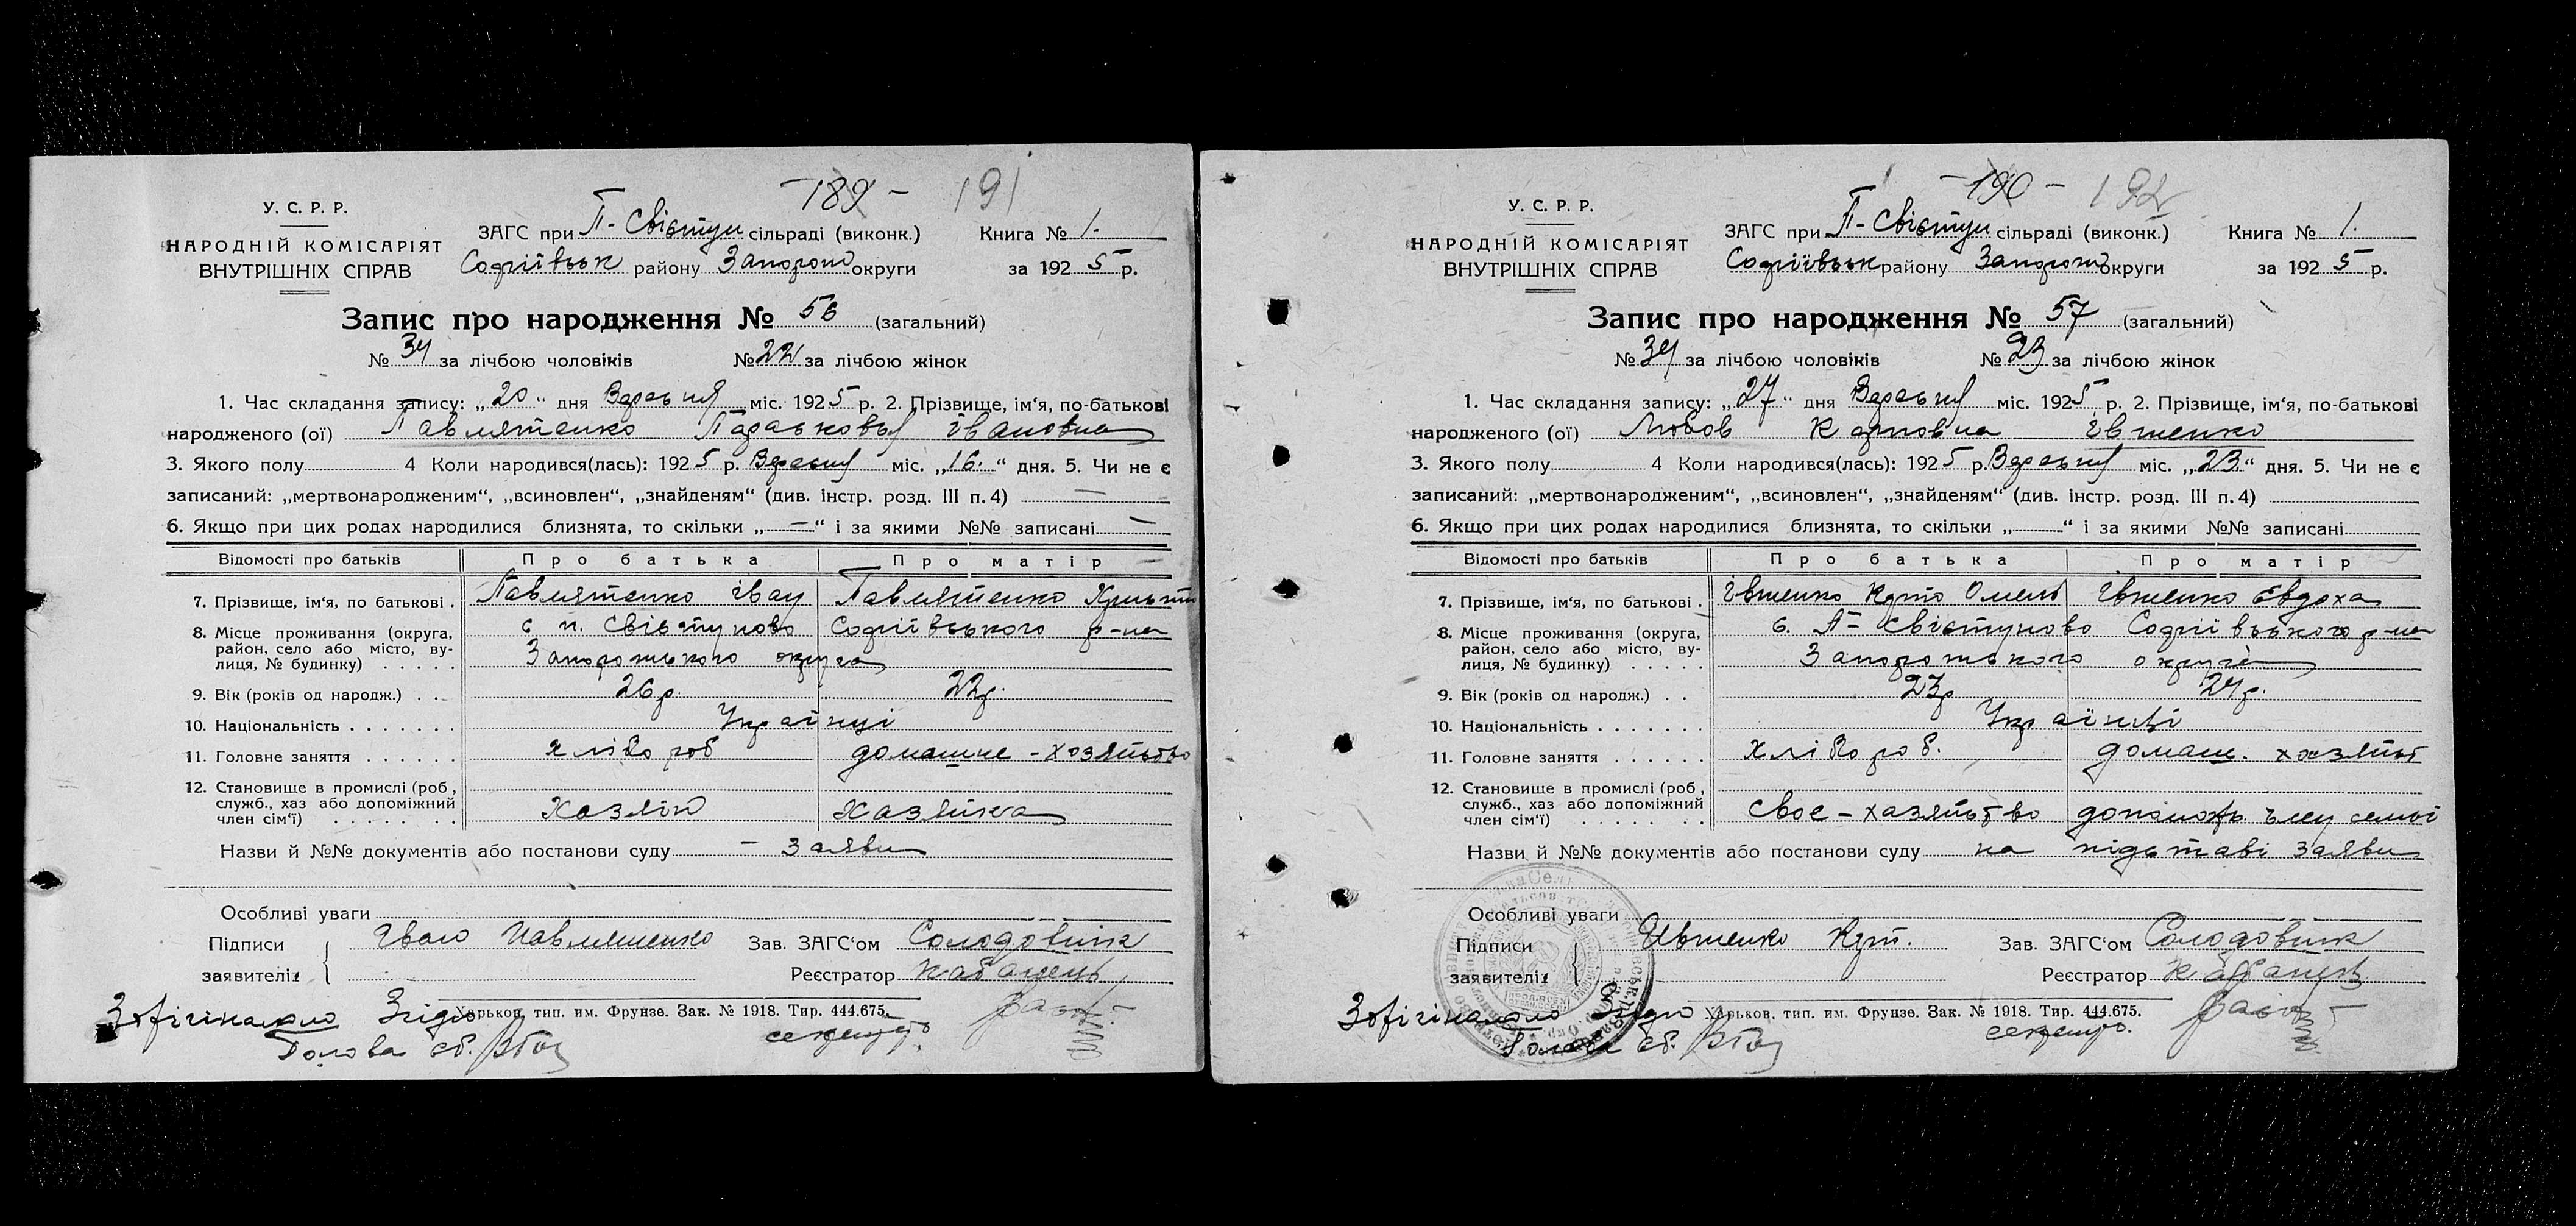 189 - 191
У. С. Р. Р.
НАРОДНІЙ КОМІСАРІЯТ
ВНУТРІШНІХ СПРАВ
ЗАГС при П-Свістун сільраді (виконк.) Книга № 1.
Софіївськ району Запорож округи за 1925 р.
Запис про народження № 56 (загальний)
№ 34 за лічбою чоловіків № 22 за лічбою жінок
1. Час складання запису: „20“ дня Вересня міс. 1925 р. 2. Прізвище, ім‘я, по-батькові
народженого (ої) Павлятенко Парасковья Івановна
3. Якого полу 4 Коли народився(лась): 1925 р. Вересня міс. „16.“ дня. 5. Чи не є
записаний: „мертвонародженим“, „всиновлен“, „знайденям“ (див. інстр. розд. III п. 4) —
6. Якщо при цих родах народилися близнята, то скільки „—“ і за якими №№ записані —
Відомості про батьків Про батька Про матір
7. Прізвище, ім‘я, по батькові . Павлятенко Іван Павлятенко
8. Місце проживання (округа, район, село або місто, вулиця, № будинку) с п. Свістуново Софіївського р-на
Запорожського округа
9. Вік (років од народж.) 26 р. 22 р.
10. Національність Українці
11. Головне заняття хлібороб домашне - хозяйство
12. Становище в промислі (роб, служб., хаз або допоміжний член сім‘ї) Хазяїн Хазяйка
Назви й №№ документів або постанови суду — Заяви
Особливі уваги
Підписи Павлятенко Зав. ЗАГС‘ом Солодовник
заявителів Реєстратор Кабанець
З оригіналом Згідно Харьков, тип. им. Фрунзе. Зак. № 1918. Тир. 444.675.
Голова с. секретарь
- 190 - 192
У. С. Р. Р.
НАРОДНІЙ КОМІСАРІЯТ
ВНУТРІШНІХ СПРАВ
ЗАГС при П-Свістун сільраді (виконк.) Книга № 1.
Софіївськ району Запорож округи за 1925 р.
Запис про народження № 57 (загальний)
№ 34 за лічбою чоловіків № 23 за лічбою жінок
1. Час складання запису: „27“ дня Вересня міс. 1925 р. 2. Прізвище, ім‘я, по-батькові
народженого (ої) Любов Карповна Івженко
3. Якого полу 4 Коли народився(лась): 1925 р. Вересня міс. „23.“ дня. 5. Чи не є
записаний: „мертвонародженим“, „всиновлен“, „знайденям“ (див. інстр. розд. III п. 4)
6. Якщо при цих родах народилися близнята, то скільки „ “ і за якими №№ записані
Відомості про батьків Про батька Про матір
7. Прізвище, ім‘я, по батькові . Івженко Івженко Євдоха
8. Місце проживання (округа, район, село або місто, вулиця, № будинку) с. П-Свістуново Софіївського р-на
Запорожського округа
9. Вік (років од народж.) 23 р 24 р.
10. Національність Українці
11. Головне заняття хлібороб. домаш. хазяйст
12. Становище в промислі (роб, служб., хаз або допоміжний член сім‘ї) своє - хазяйство член семьї
Назви й №№ документів або постанови суду на підставі заяви
Особливі уваги
Підписи Ивженко Зав. ЗАГС‘ом Солодовник
заявителів Реєстратор Кабанець
З оригіналом Згідно Харьков, тип. им. Фрунзе. Зак. № 1918. Тир. 444.675.
Голова с. секретарь.